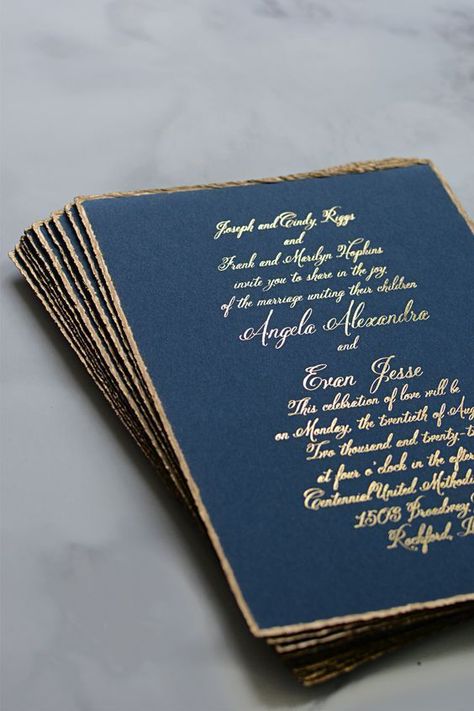 Joseph and Cindy Riggs
and
Frank and Marilyn Hopkins
invite you to share in the joy
of the marriage uniting their children
Angela Alexandra
and
Evan Jesse
This celebration of love will be
on Monday, the twentieth of Aug
Two thousand and twenty-t
at four o'clock in the after
Centennial United Methodis
1503 Broadway
Rockford, Il